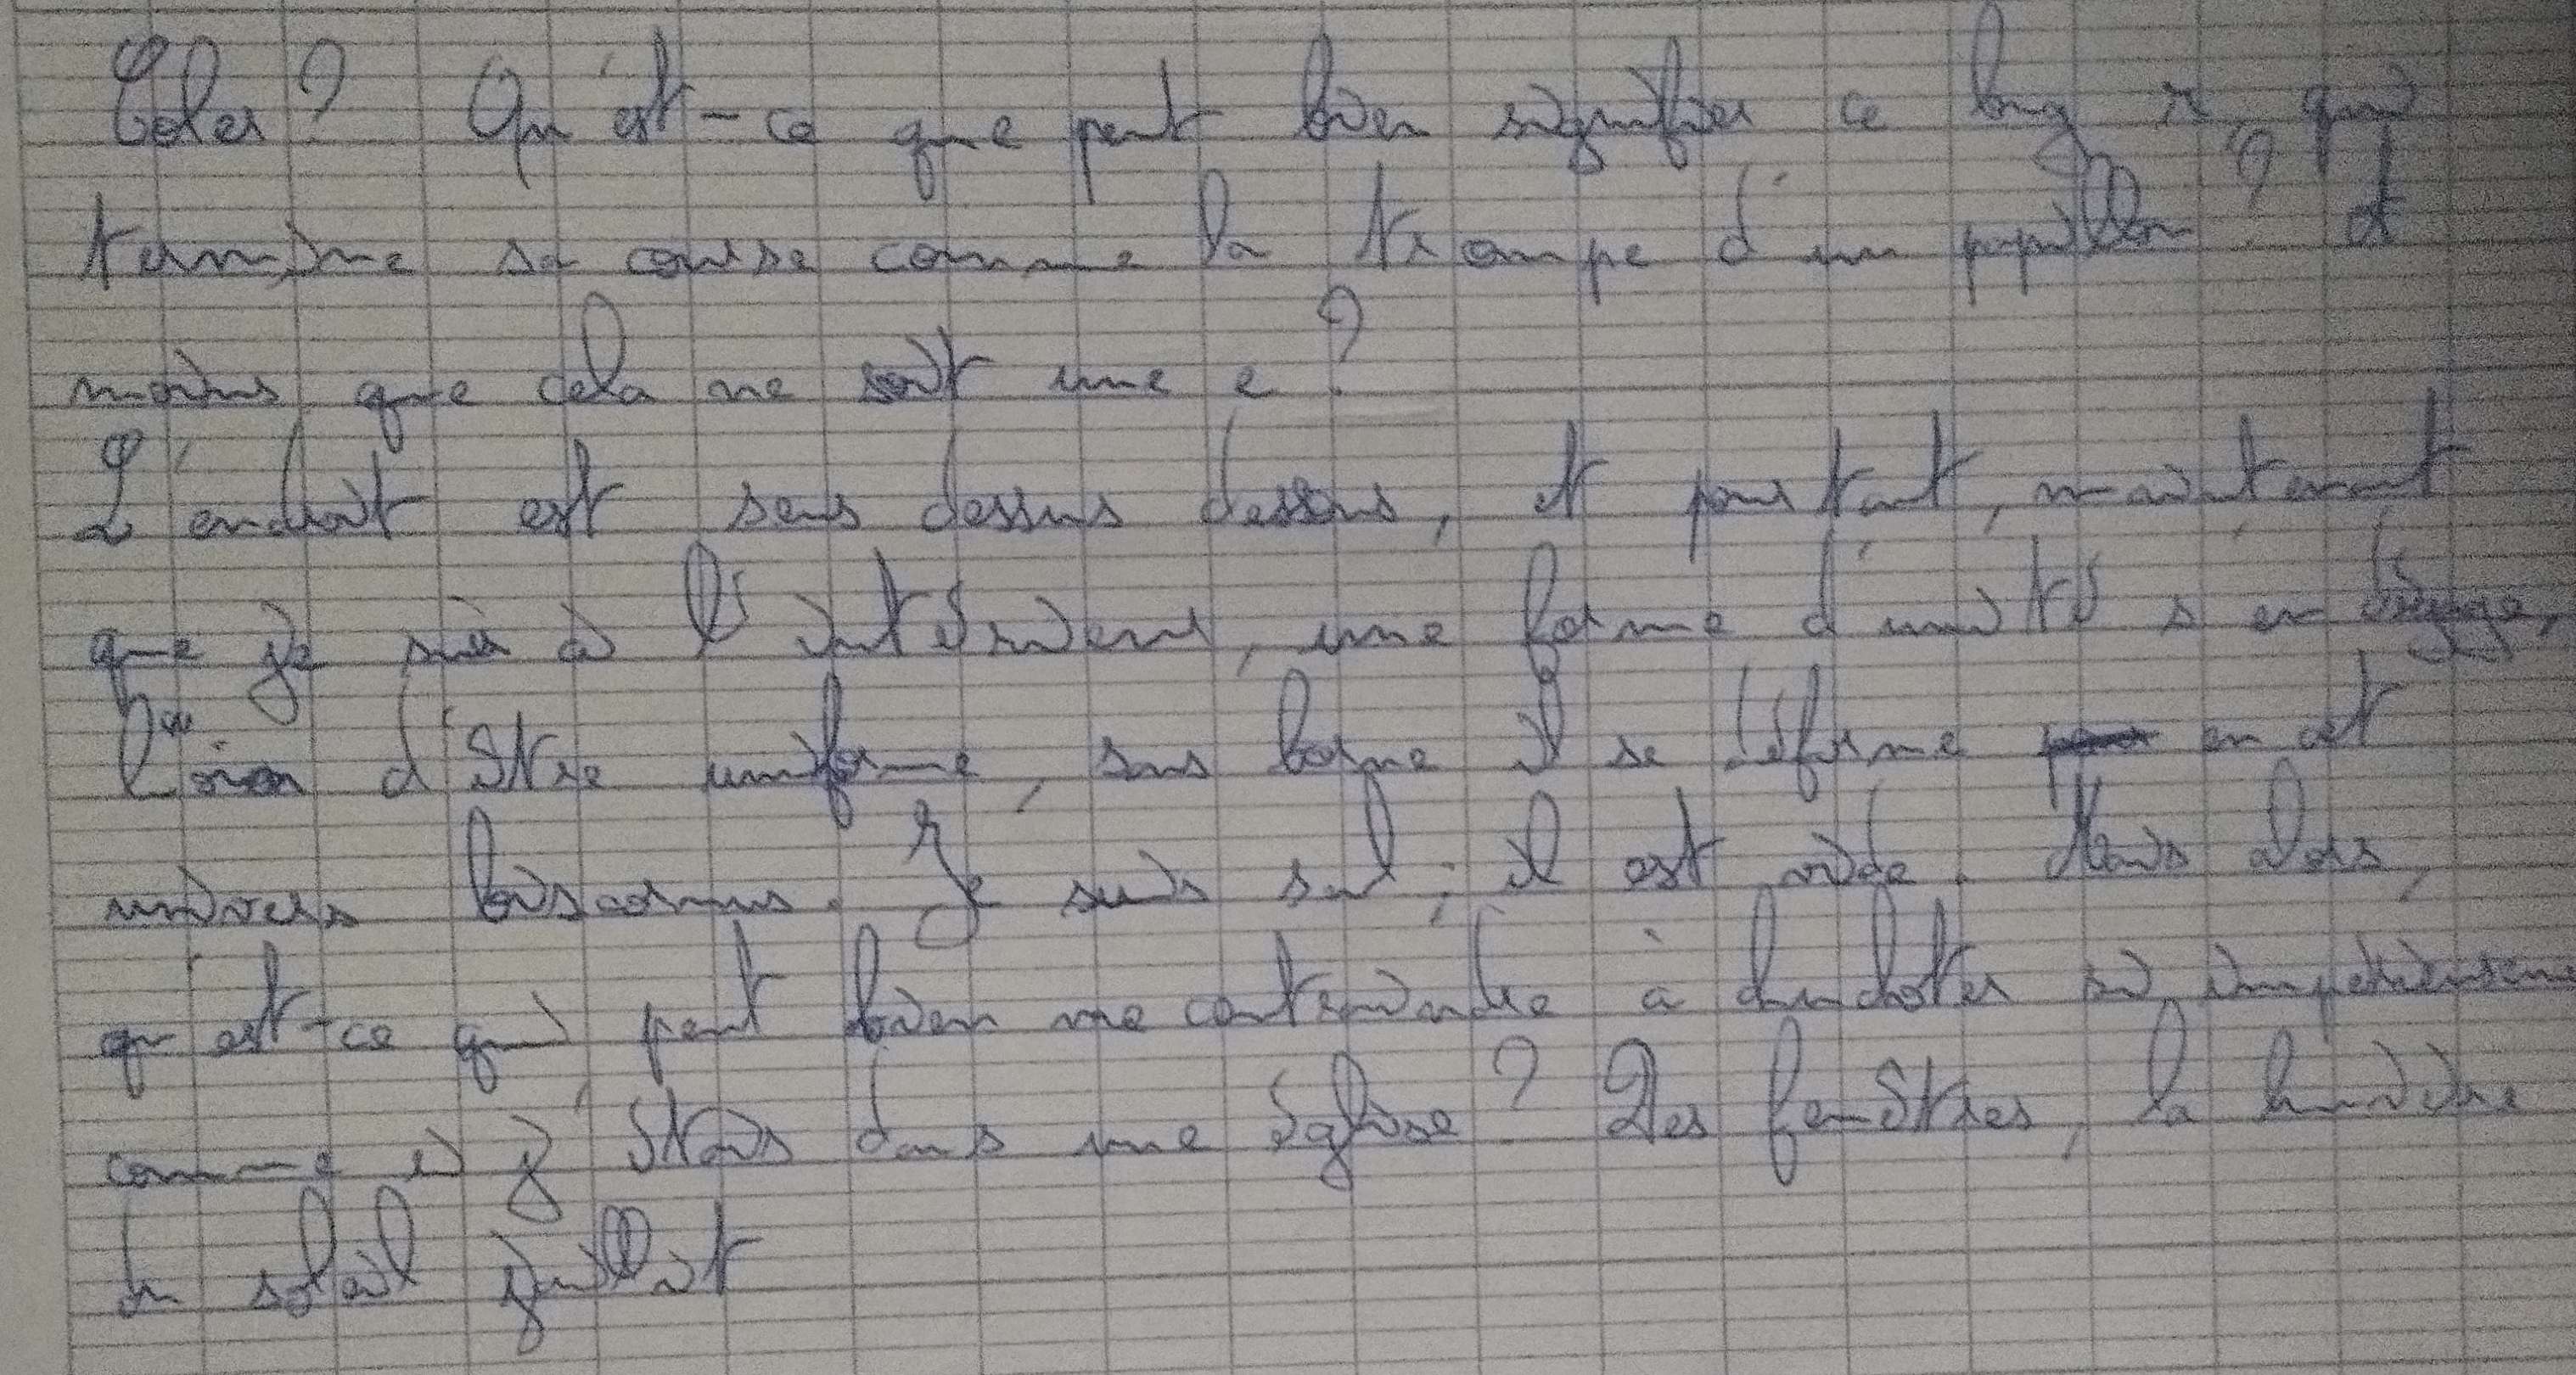 ? Qu'est-ce que peut bien signifier ce long r, qui
termine sa course comme la trompe d'un papillon ? A
moins que cela ne soit une e ?
L'endroit est sens dessus dessous, et pourtant, maintenant
que je suis à l'intérieur, une forme d'unité s'en dégage,
Loin d'être uniforme, sans borne il se déforme en cet
univers biscornus. Je suis seul ; il est vide. Mais alors,
qu'est-ce qui peut bien me contraindre à chuchoter si impérieusement
comme si j'étais dans une église ? Des fenêtres, la lumière
du soleil jaillit